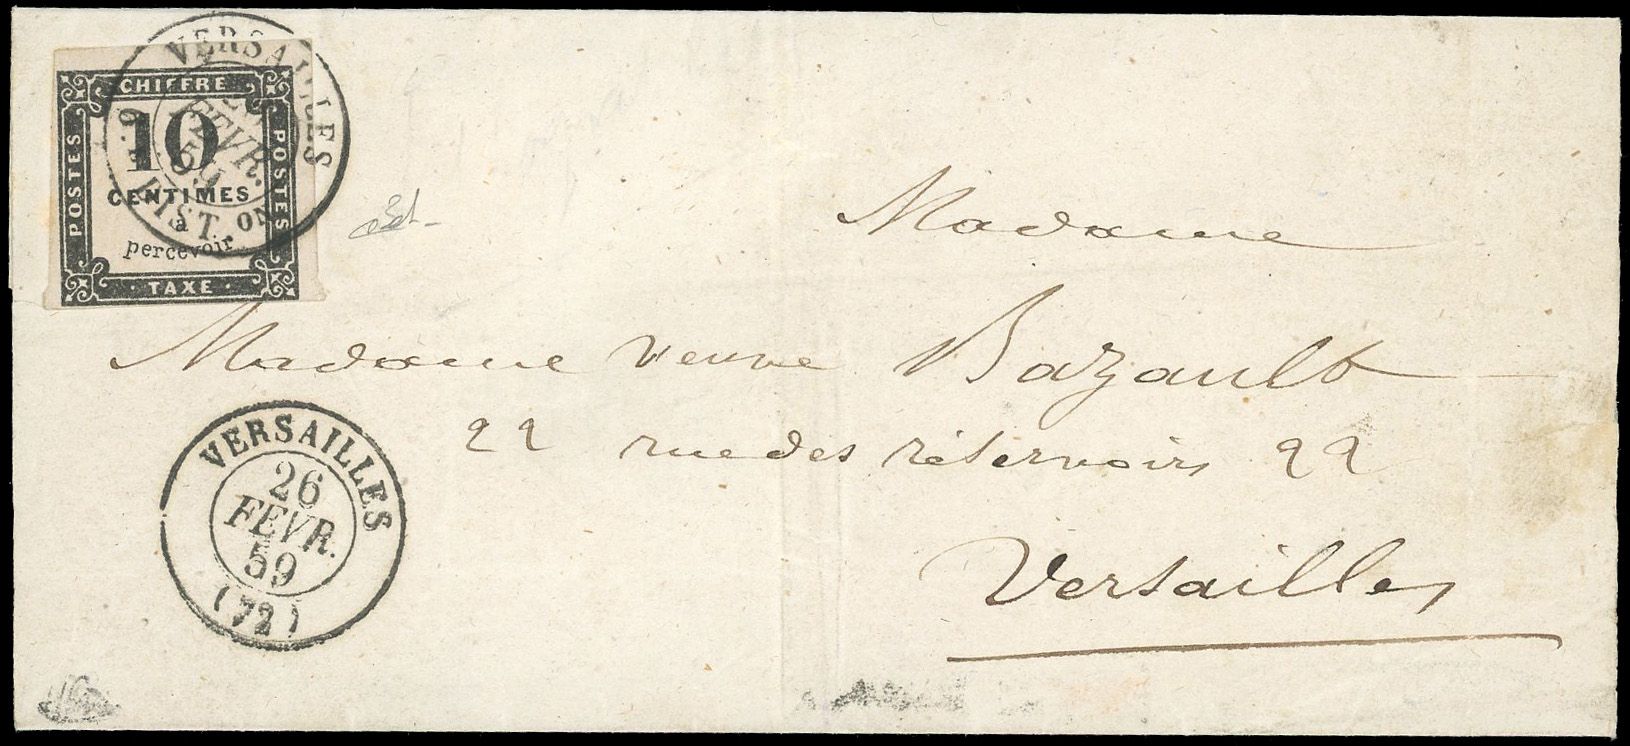 CHIFFRE
POSTES
10
CENTIMES
à
percevoir
POSTES
TAXE
VERSAILLES
FEVR.
59
DIST.ON
Madame
Madame veuve Bazault
22 rue des réservoirs 22
Versailles
VERSAILLES
26
FEVR.
59
(72)